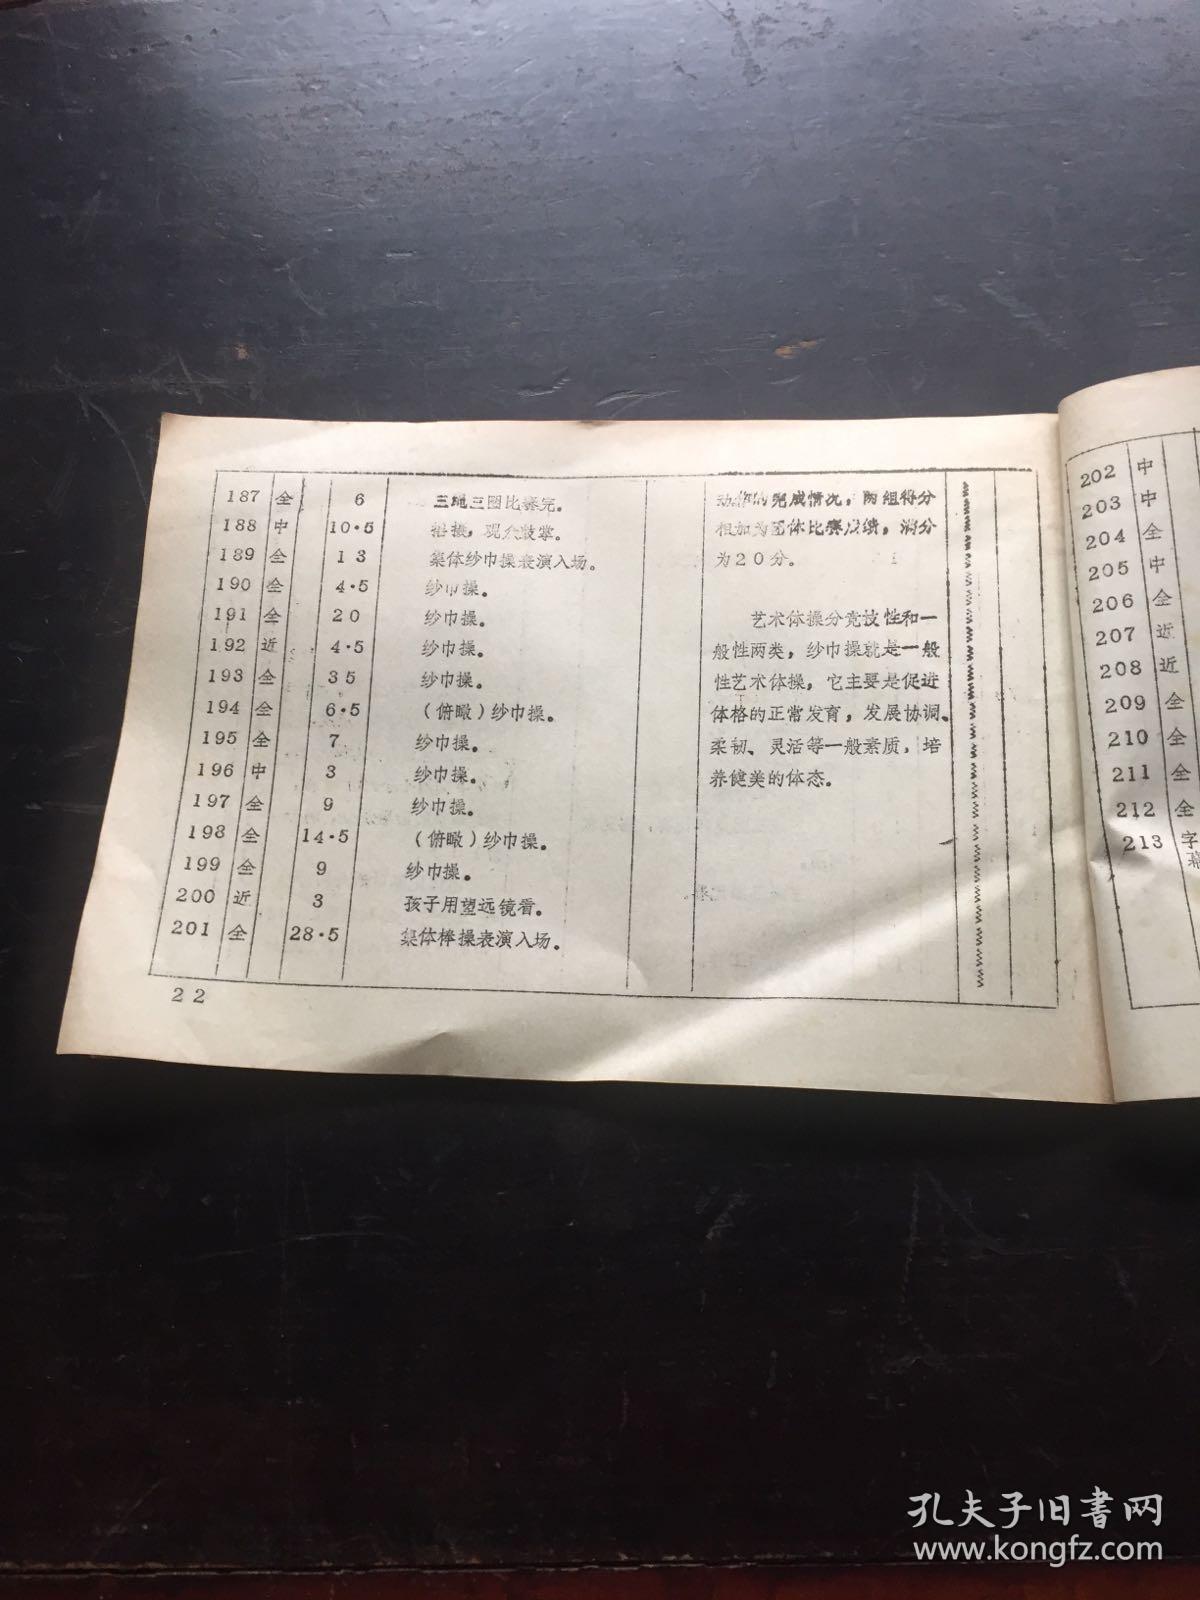 187 全 6 三绳三圈比赛完。
188 中 10·5 观众鼓掌。
189 全 13 集体纱巾操表演入场。
190 全 4·5 纱巾操。
191 全 20 纱巾操。
192 近 4·5 纱巾操。
193 全 35 纱巾操。
194 全 6·5 （俯瞰）纱巾操。
195 全 7 纱巾操。
196 中 3 纱巾操。
197 全 9 纱巾操。
198 全 14·5 （俯瞰）纱巾操。
199 全 9 纱巾操。
200 近 3 孩子用望远镜看。
201 全 28·5 集体棒操表演入场。
动作的完成情况，两组得分
相加为团体比赛成绩，满分
为20分。
艺术体操分竞技性和一
般性两类，纱巾操就是一般
性艺术体操，它主要是促进
体格的正常发育，发展协调、
柔韧、灵活等一般素质，培
养健美的体态。
22
202 中
203 中
204 全
205 中
206 全
207 近
208 近
209 全
210 全
211 全
212 全
213 字幕
孔夫子旧书网
www.kongfz.com